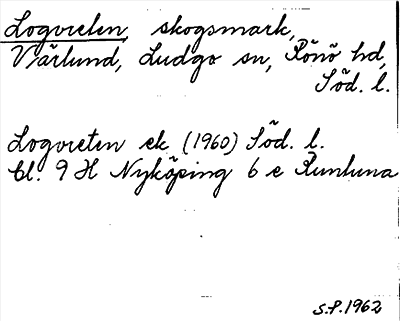 Logvreten, skogsmark,
Värlund, Ludgo sn, Rönö hd,
Söd. l.
Logvreten ek (1960) Söd. l.
bl. 9 H Nyköping 6 e Runtuna
S.P. 1962